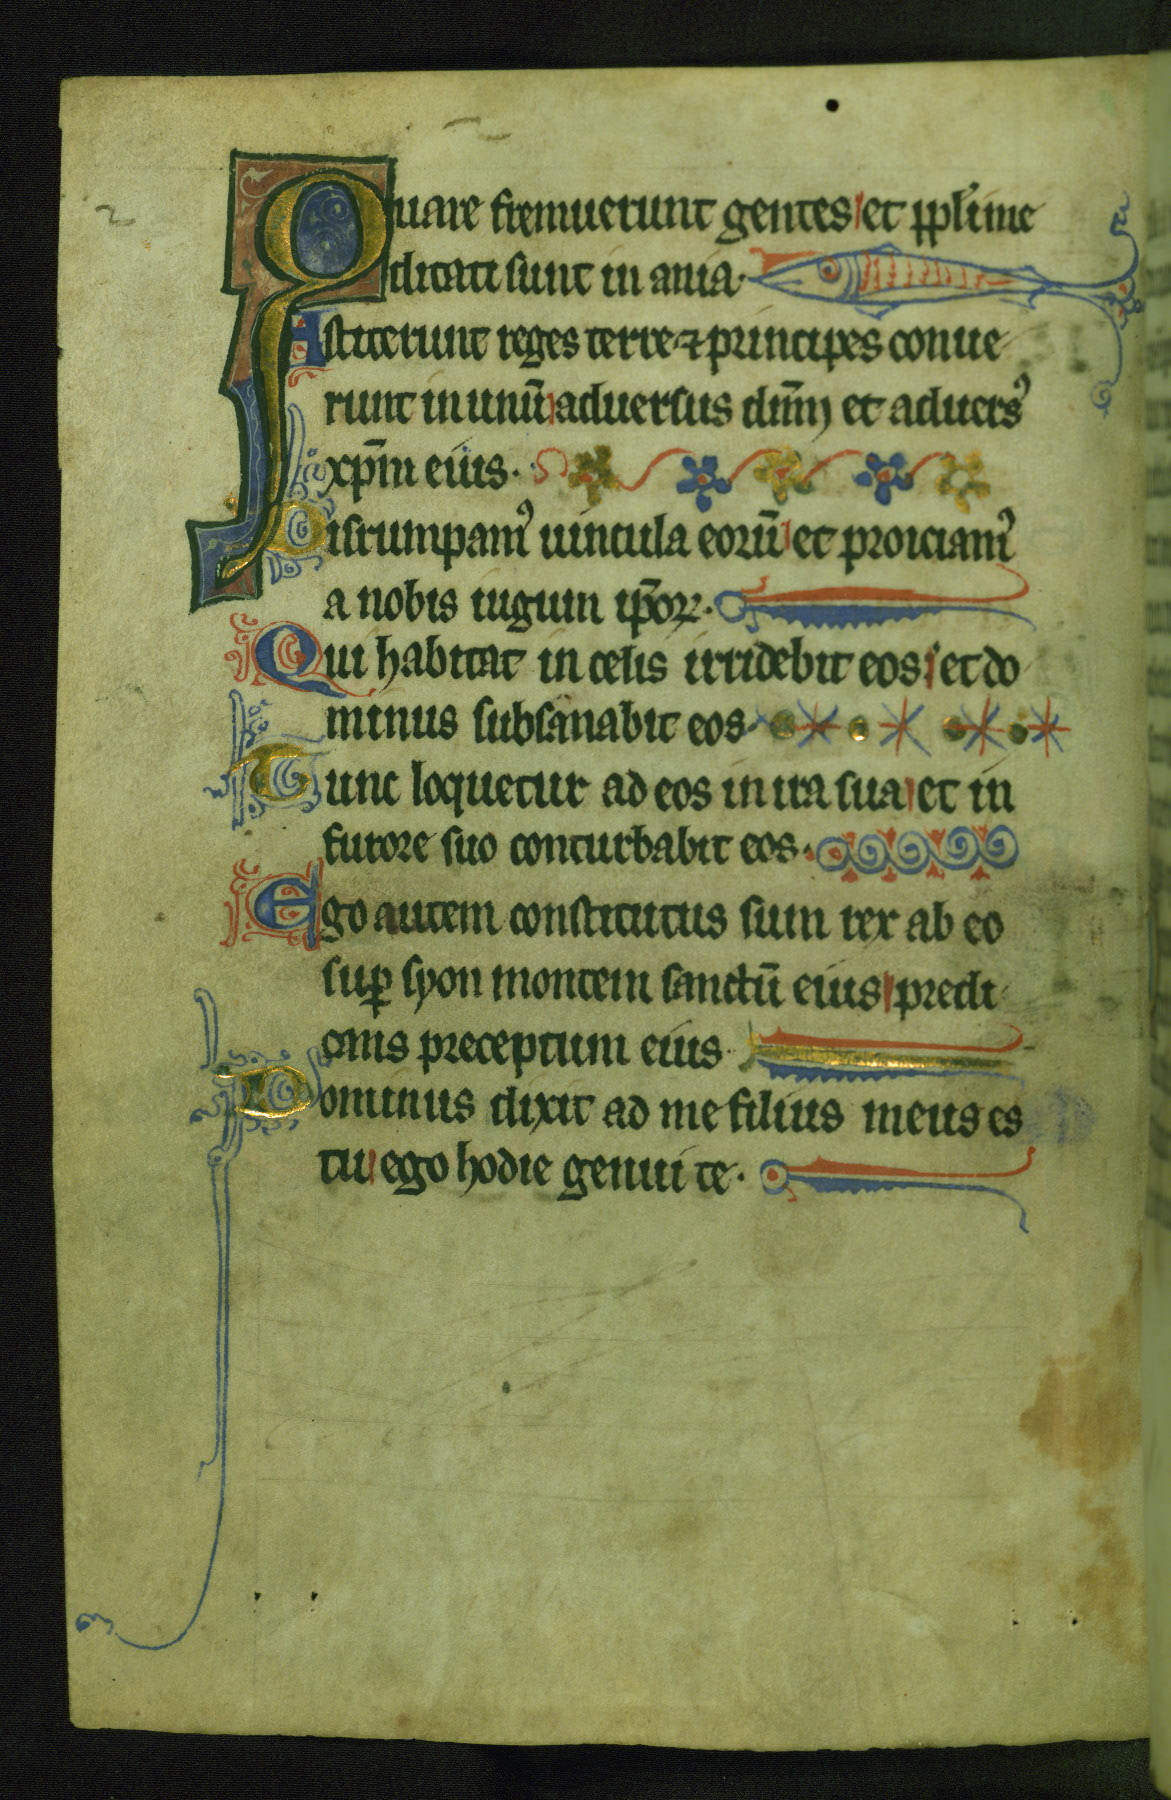 2
Quare fremuerunt gentes et pp̄li me
ditati sunt in ania·
Astiterunt reges terre ⁊ principes conue
runt in unū aduersus dn̄m et aduersꝰ
xp̄m eius·
Disrumpamꝰ uincula eorū et proiciamꝰ
a nobis iugum ip̄oꝝ·
Qui habitat in celis irridebit eos et do
minus subsanabit eos·
Tunc loquetur ad eos in ira sua et in
furore suo conturbabit eos·
Ego autem constitutus sum rex ab eo
suꝑ syon montem sanctū eius predi
cans preceptum eius
Dominus dixit ad me filius meus es
tu ego hodie genui te·